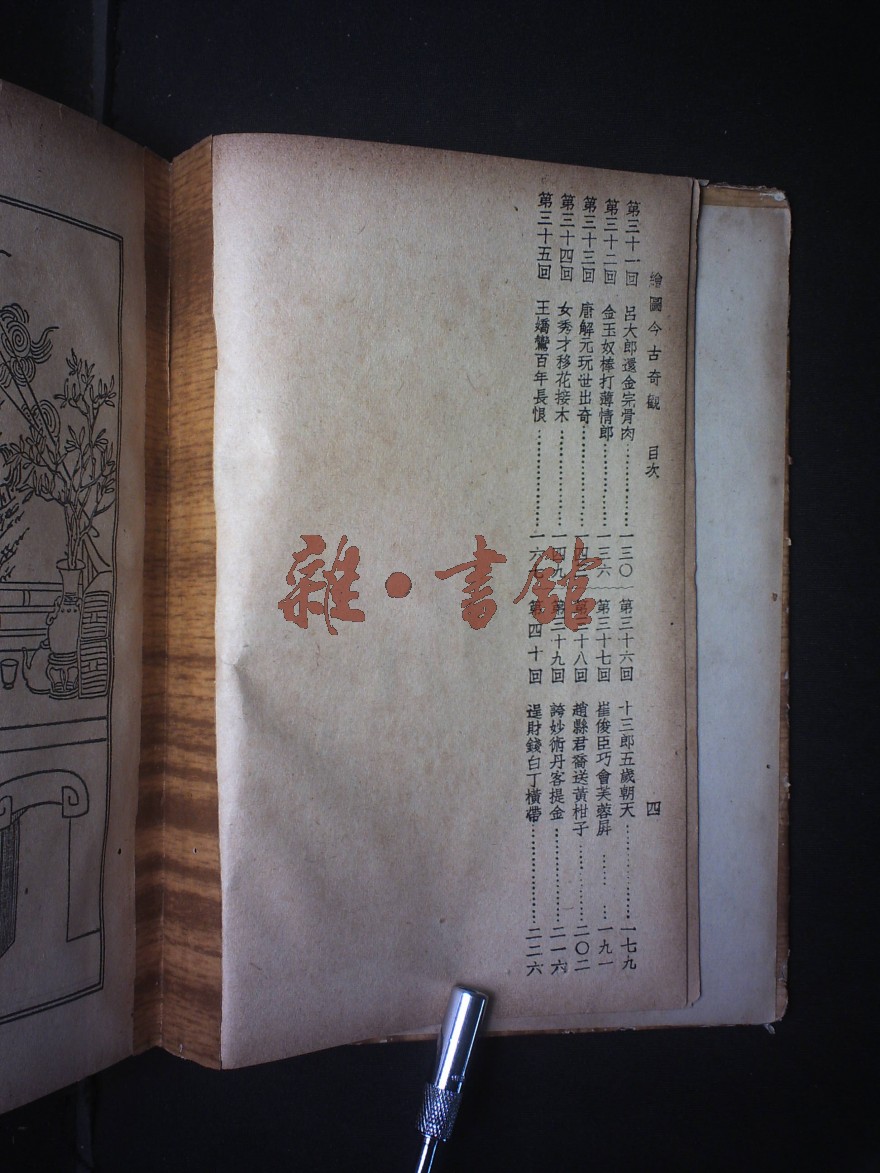 繪圖今古奇觀 目次 四
第三十一回 呂大郎還金完骨肉……………一三〇
第三十二回 金玉奴棒打薄情郎……………一三六
第三十三回 唐解元玩世出奇……………四
第三十四回 女秀才移花接木……………一四九
第三十五回 王嬌鸞百年長恨……………一六七
第三十六回 十三郎五歲朝天……………一七九
第三十七回 崔俊臣巧會芙蓉屏……………一九一
第三十八回 趙縣君喬送黃柑子……………二〇二
第三十九回 誇妙術丹客提金……………二一六
第四十回 逞財錢白丁橫帶……………二二六
雜·書館